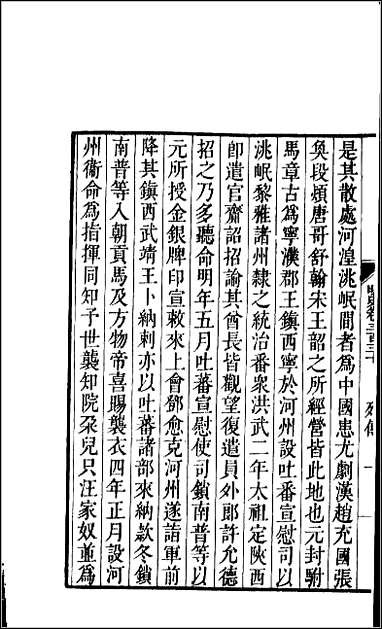 明史卷三百三十　列傳　一
是其散處河湟洮岷間者爲中國患尤劇漢趙充國張
奐段熲唐哥舒翰宋王韶之所經營皆此地也元封駙
馬章古爲寧濮郡王鎮西寧於河州設吐番宣慰司以
洮岷黎雅諸州隸之統治番衆洪武二年太祖定陝西
卽遣官齎詔招諭其酋長皆觀望復遣員外郎許允德
招之乃多聽命明年五月吐蕃宣慰使司鎖南普等以
元所授金銀牌印宣敕來上會鄧愈克河州遂詣軍前
降其鎮西武靖王卜納剌亦以吐蕃諸部來納款冬鎖
南普等入朝貢馬及方物帝喜賜襲衣四年正月設河
州衞命爲指揮同知子世襲知院朶兒只汪家奴並爲